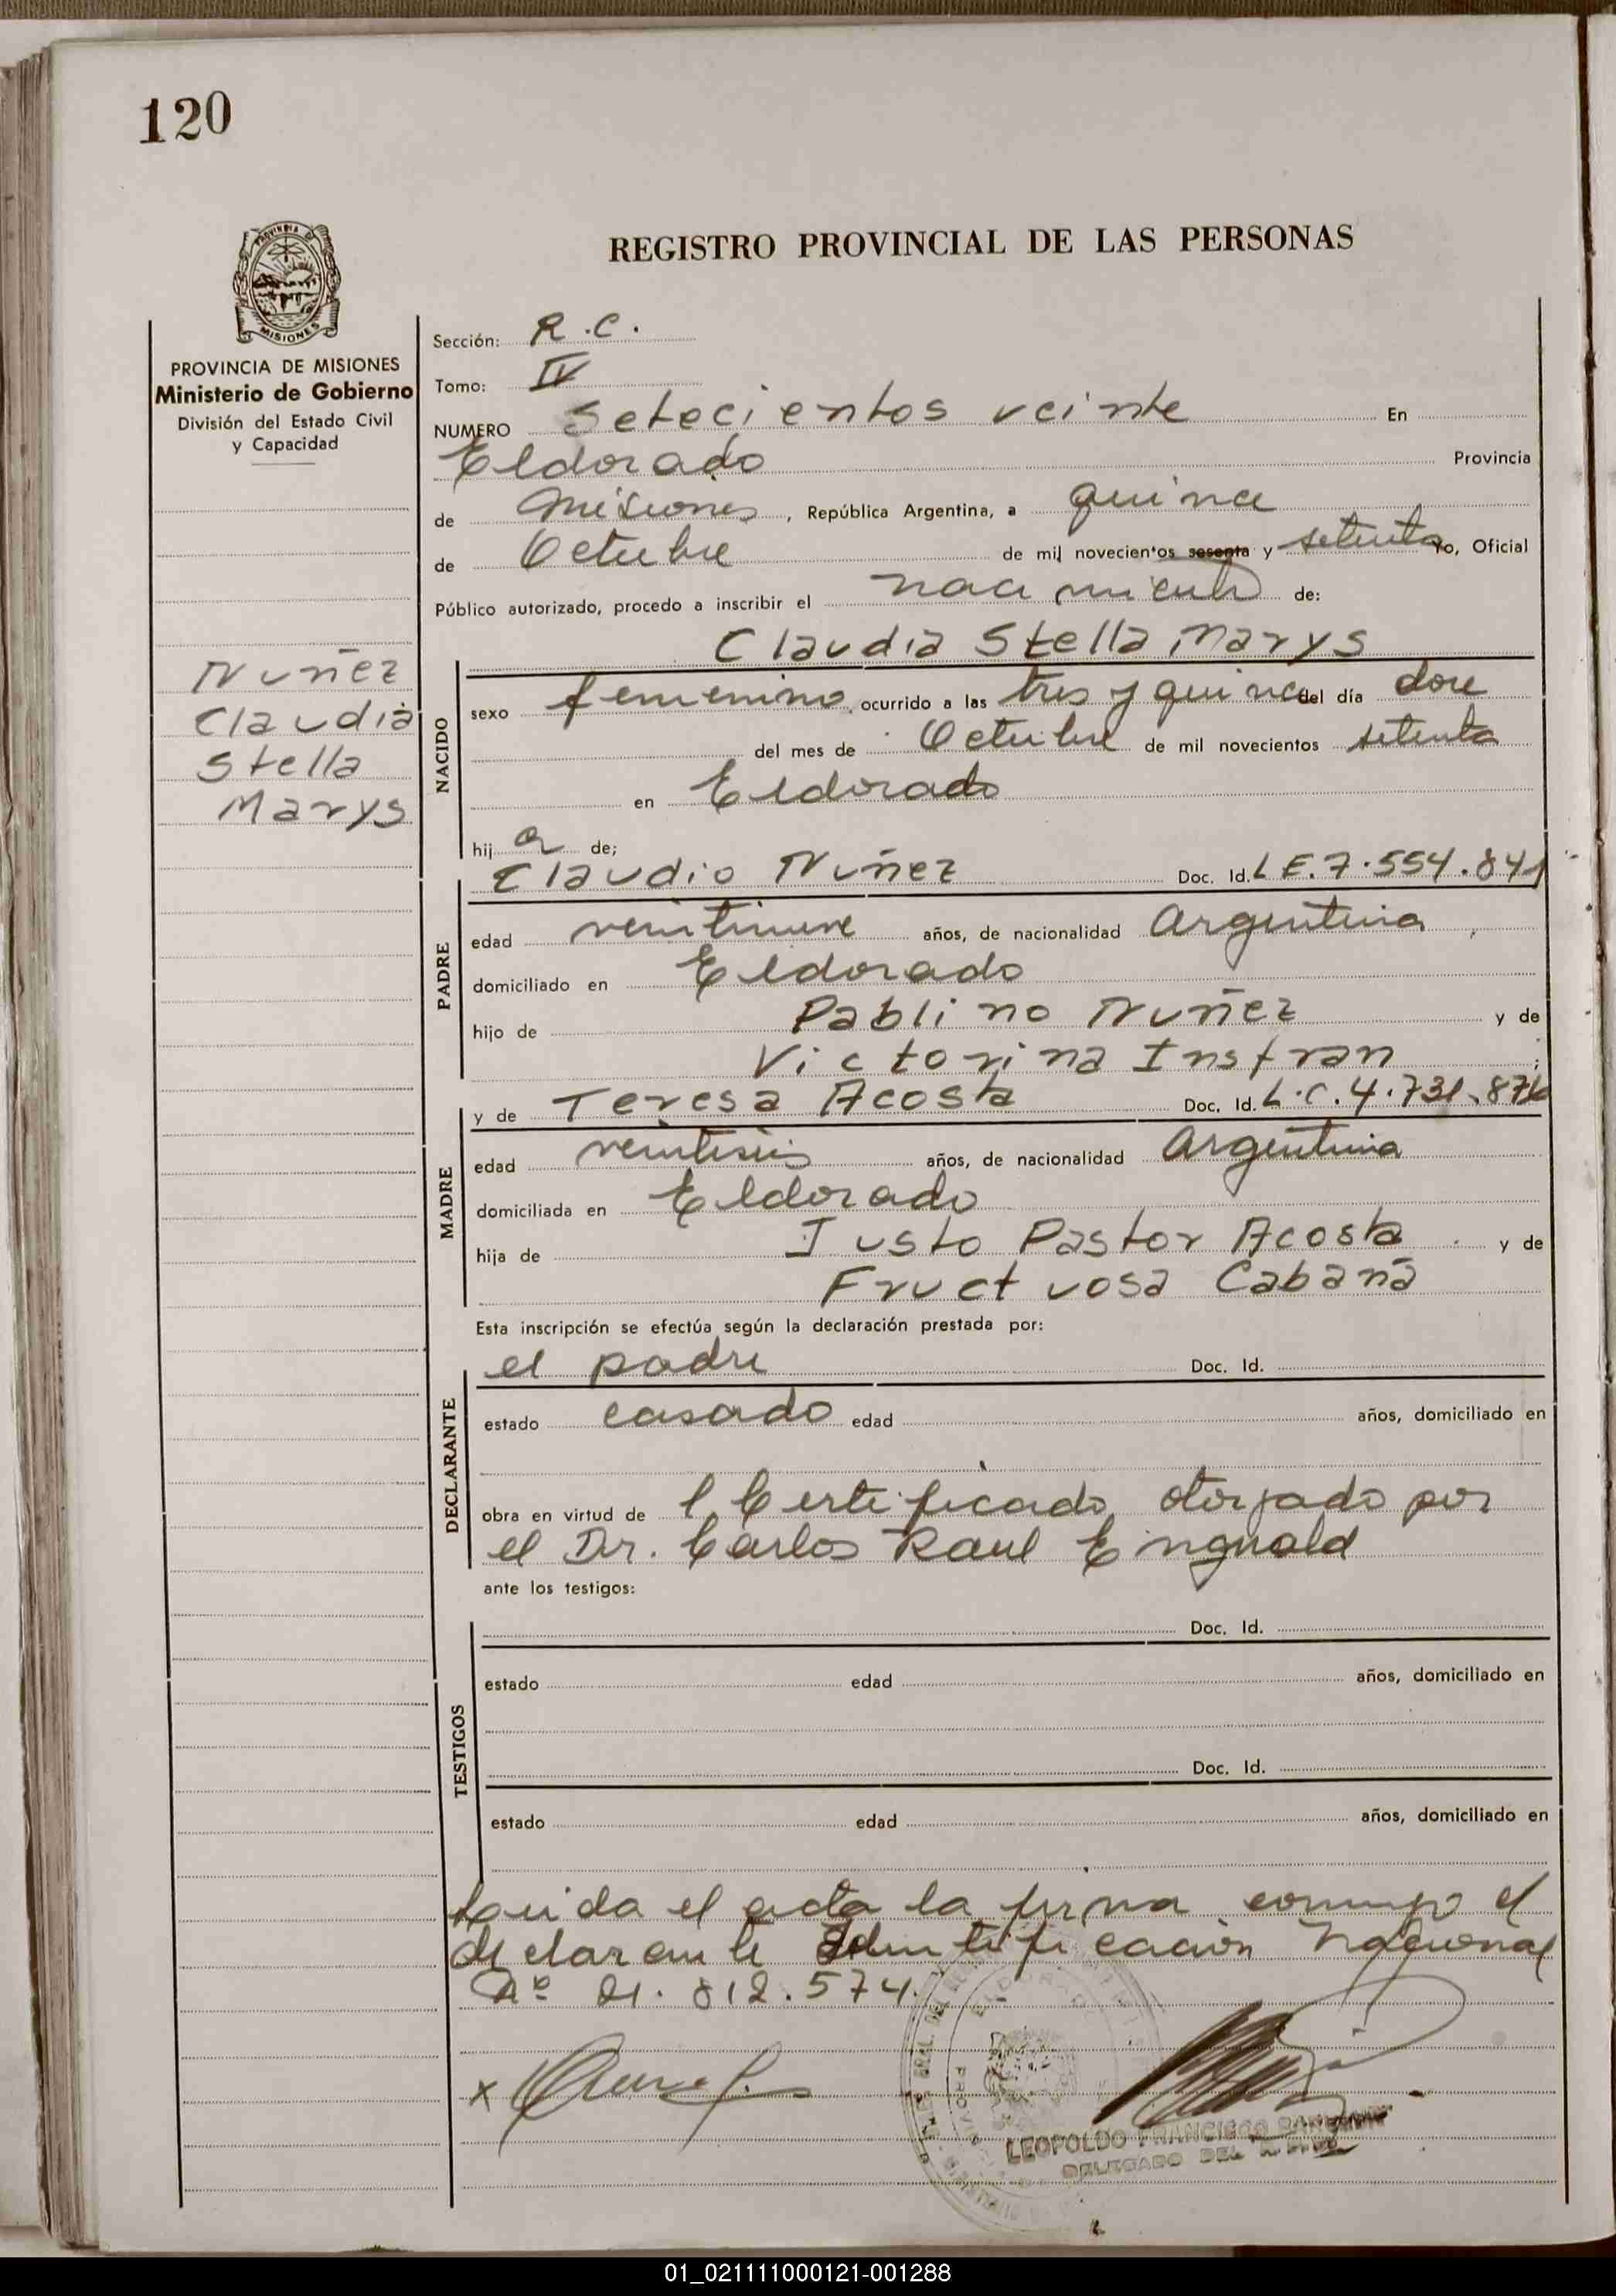 120
REGISTRO PROVINCIAL DE LAS PERSONAS
PROVINCIA DE MISIONES
Ministerio de Gobierno
División del Estado Civil
y Capacidad
Nuñez
Claudia
Stella
Marys
Sección: R.C.
Tomo: IV
NUMERO Setecientos veinte En
Eldorado Provincia
de Misiones, República Argentina, a quince
de Octubre de mil novecientos sesenta y setenta Yo, Oficial
Público autorizado, procedo a inscribir el nacimiento de:
Claudia Stella Marys
NACIDO
sexo femenino, ocurrido a las tres y quince del día doce
del mes de Octubre de mil novecientos setenta
en Eldorado
hij a de;
Claudio Nuñez Doc. Id. L E. 7.554.841
PADRE
edad veintinueve años, de nacionalidad Argentina,
domiciliado en Eldorado
hijo de Pablino Nuñez y de
Victorina Insfran;
y de Teresa Acosta Doc. Id. L.C. 4.731.876
MADRE
edad veintiseis años, de nacionalidad Argentina
domiciliada en Eldorado
hija de Justo Pastor Acosta y de
Fructuosa Cabaña
Esta inscripción se efectúa según la declaración prestada por:
el padre Doc. Id.
DECLARANTE
estado casado edad años, domiciliado en
obra en virtud de l Certificado otorgado por
el Dr. Carlos Raul
ante los testigos:
Doc. Id.
TESTIGOS
estado edad años, domiciliado en
Doc. Id.
estado edad años, domiciliado en
Leida el acta la firma conmigo el
declarante Identificación Nacional
Nº 21.812.574.
x
LEOPOLDO FRANCISCO
DELEGADO DEL
MISIONES
01_021111000121-001288